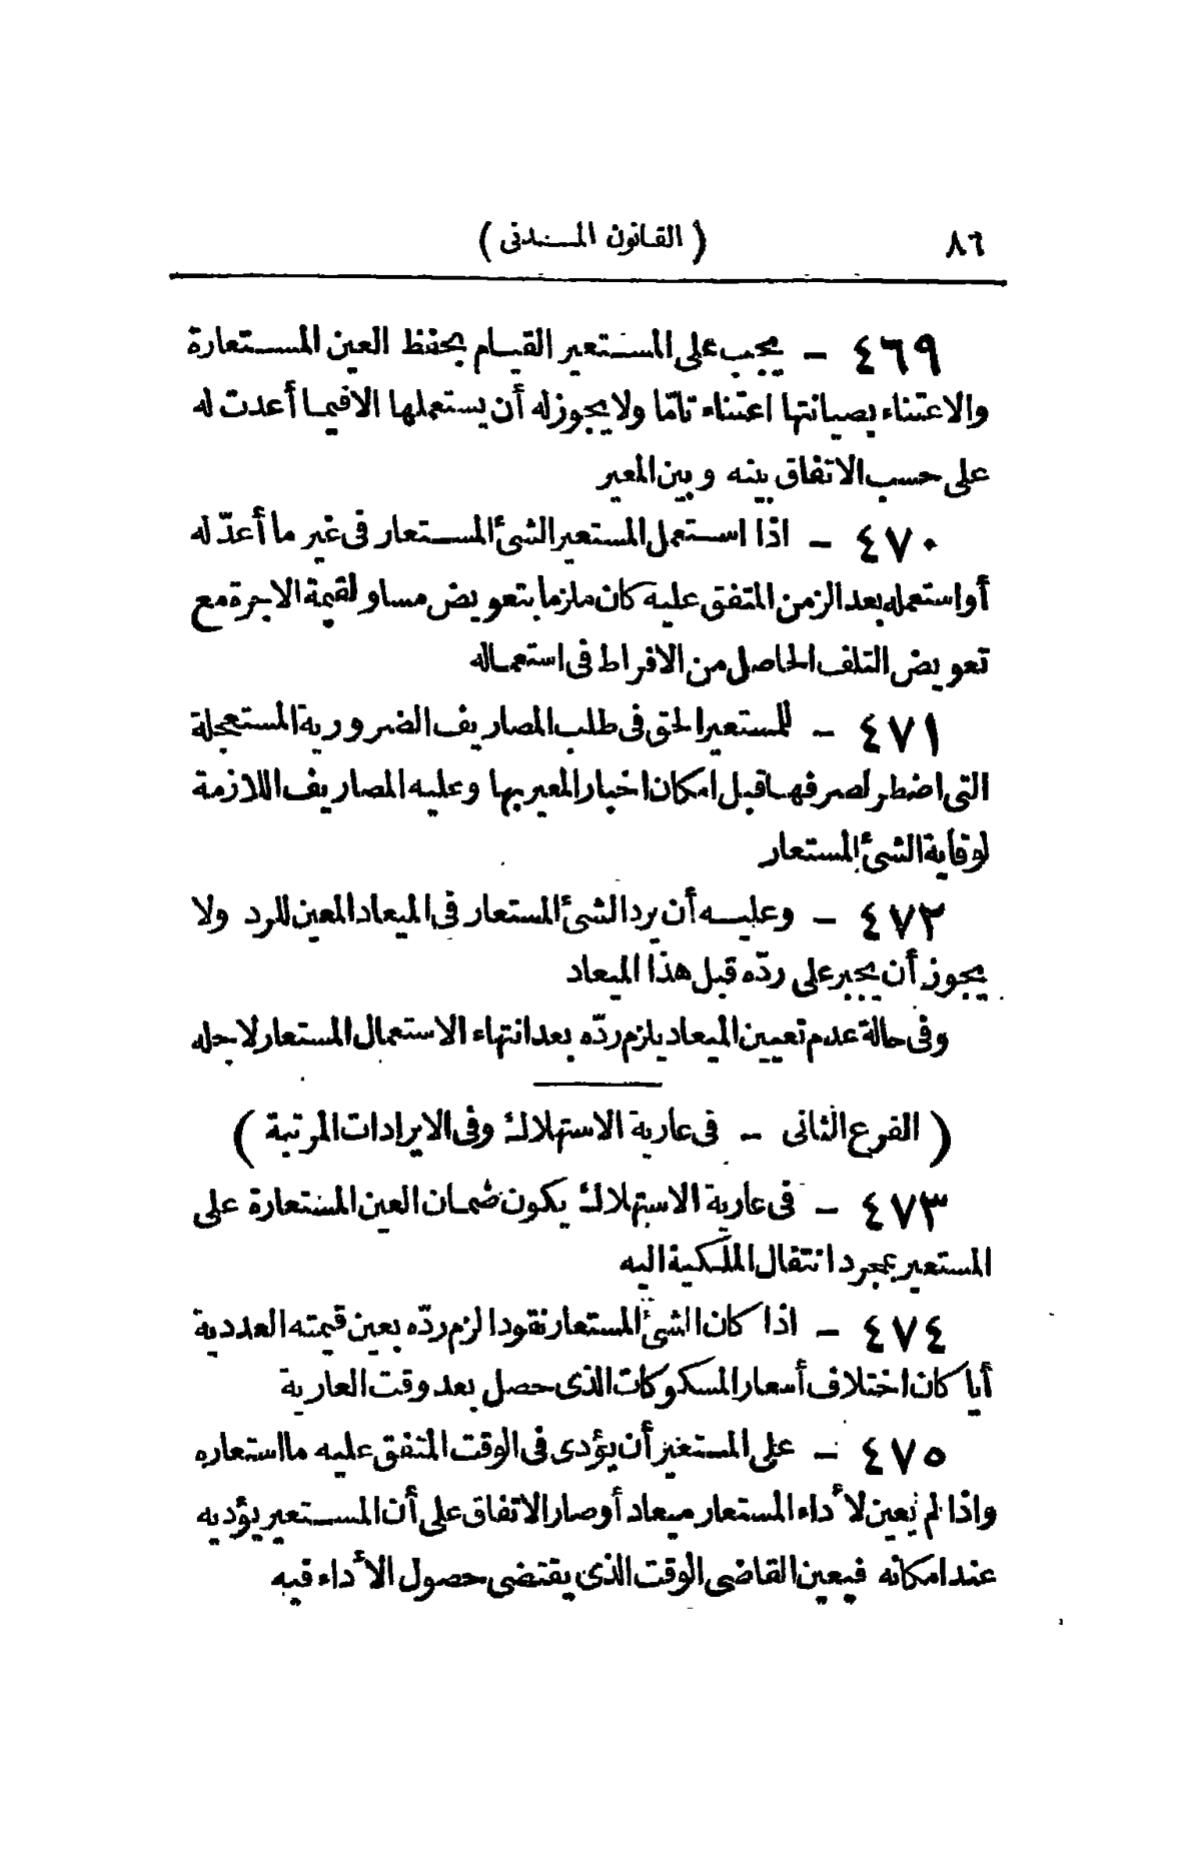 ٨٦
( القانون المدنى )
٤٦٩ – يجب على المستعير القيام بحفظ العين المستعارة
والاعتناء بصيانتها اعتناء تامّا ولا يجوز له أن يستعملها الا فيما أعدت له
على حسب الاتفاق بينه وبين المعير
٤٧٠ – اذا استعمل المستعير الشئ المستعار فى غير ما أعدّ له
أو استعمله بعد الزمن المتفق عليه كان ملزما بتعويض مساو لقيمة الاجرة مع
تعويض التلف الحاصل من الافراط فى استعماله
٤٧١ – للمستعير الحق فى طلب المصاريف الضرورية المستعجلة
التى اضطر لصرفها قبل امكان اخبار المعير بها وعليه المصاريف اللازمة
لوقاية الشئ المستعار
٤٧٢ – وعليه أن يرد الشئ المستعار فى الميعاد المعين للرد ولا
يجوز أن يجبر على ردّه قبل هذا الميعاد
وفى حالة عدم تعيين الميعاد يلزم ردّه بعد انتهاء الاستعمال المستعار لاجله
( الفرع الثانى – فى عارية الاستهلاك وفى الايرادات المرتبة )
٤٧٣ – فى عارية الاستهلاك يكون ضمان العين المستعارة على
المستعير بمجرد انتقال الملكية اليه
٤٧٤ – اذا كان الشئ المستعار نقودا لزم ردّه بعين قيمته العددية
أيا كان اختلاف أسعار المسكوكات الذى حصل بعد وقت العارية
٤٧٥ – على المستعير أن يؤدى فى الوقت المتفق عليه ما استعاره
واذا لم يعين لأداء المستعار ميعاد أو صار الاتفاق على أن المستعير يؤديه
عند امكانه فيعين القاضى الوقت الذى يقتضى حصول الأداء فيه